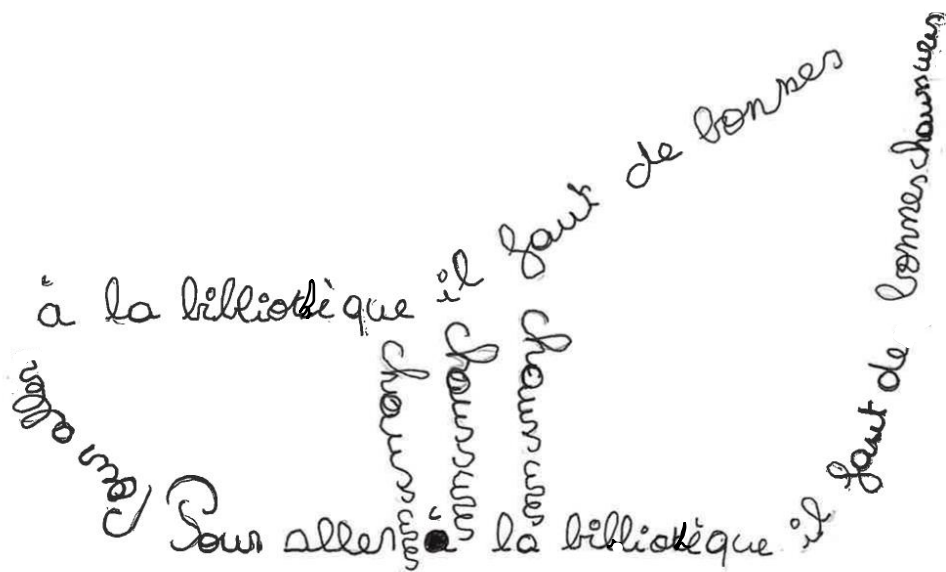 Pour aller
à la bibliothèque il faut de bonnes
chaussures
chaussures
chaussures
Pour aller à la bibliothèque il faut de bonnes chaussures